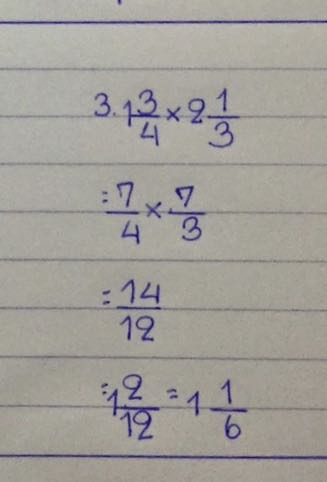 3. 1 3/4 × 2 1/3
= 7/4 × 7/3
= 14/12
= 1 2/12 = 1 1/6